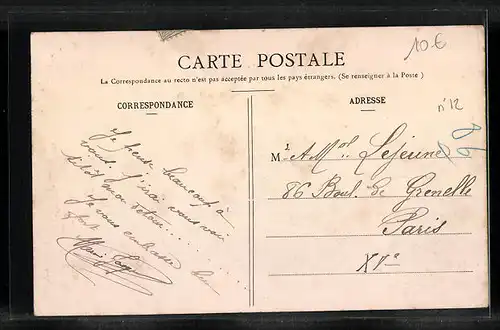 10 €
CARTE POSTALE
La Correspondance au recto n'est pas acceptée par tous les pays étrangers. (Se renseigner à la Poste)
CORRESPONDANCE
Je pense beaucoup à
vous. J'irai vous voir
sitôt mon retour.....
Je vous embrasse bien
fort
Marie
ADRESSE
n° 12
86
M Lejeune
86 Boul. de Grenelle
Paris
XVe